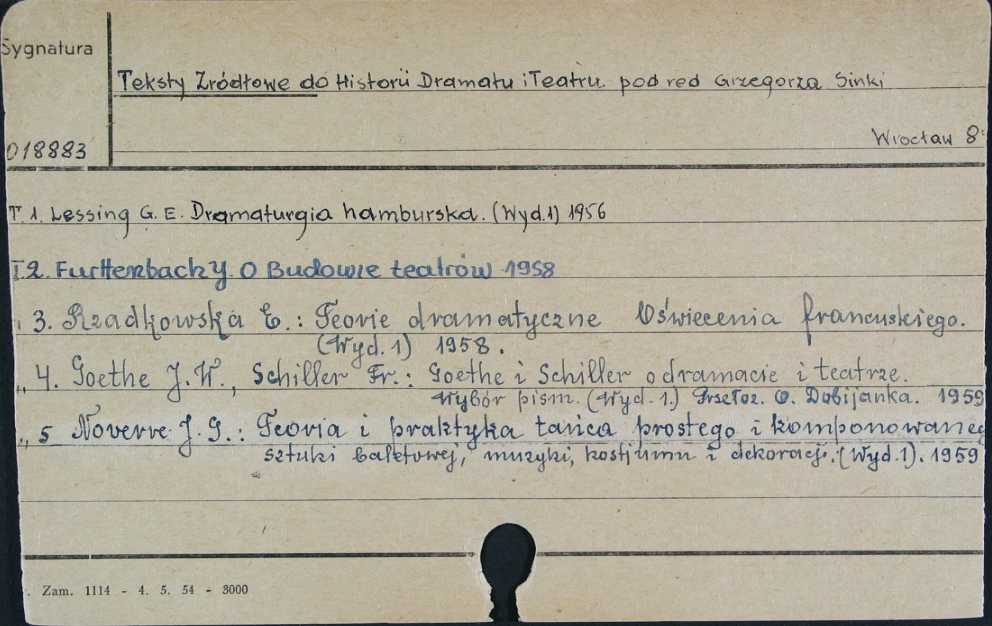 Sygnatura
Teksty Źródłowe do Historii Dramatu i Teatru pod red Grzegorza Sinki
018883
Wrocław 8°
T. 1. Lessing G. E. Dramaturgia hamburska. (Wyd.1) 1956
T.2. Furttenbach J. O Budowie teatrów 1958
„ 3. Rzadkowska E.: Teorie dramatyczne Oświecenia francuskiego.
(Wyd. 1) 1958.
„ 4. Goethe J. W., Schiller Fr.: Goethe i Schiller o dramacie i teatrze.
Wybór pism. (Wyd. 1.) Przełoż. O. Dobijanka. 1959
„ 5 Noverre J. G.: Teoria i praktyka tańca prostego i komponowaneg
sztuki baletowej, muzyki, kostjumu i dekoracji. (Wyd. 1). 1959
. Zam. 1114 - 4. 5. 54 - 3000